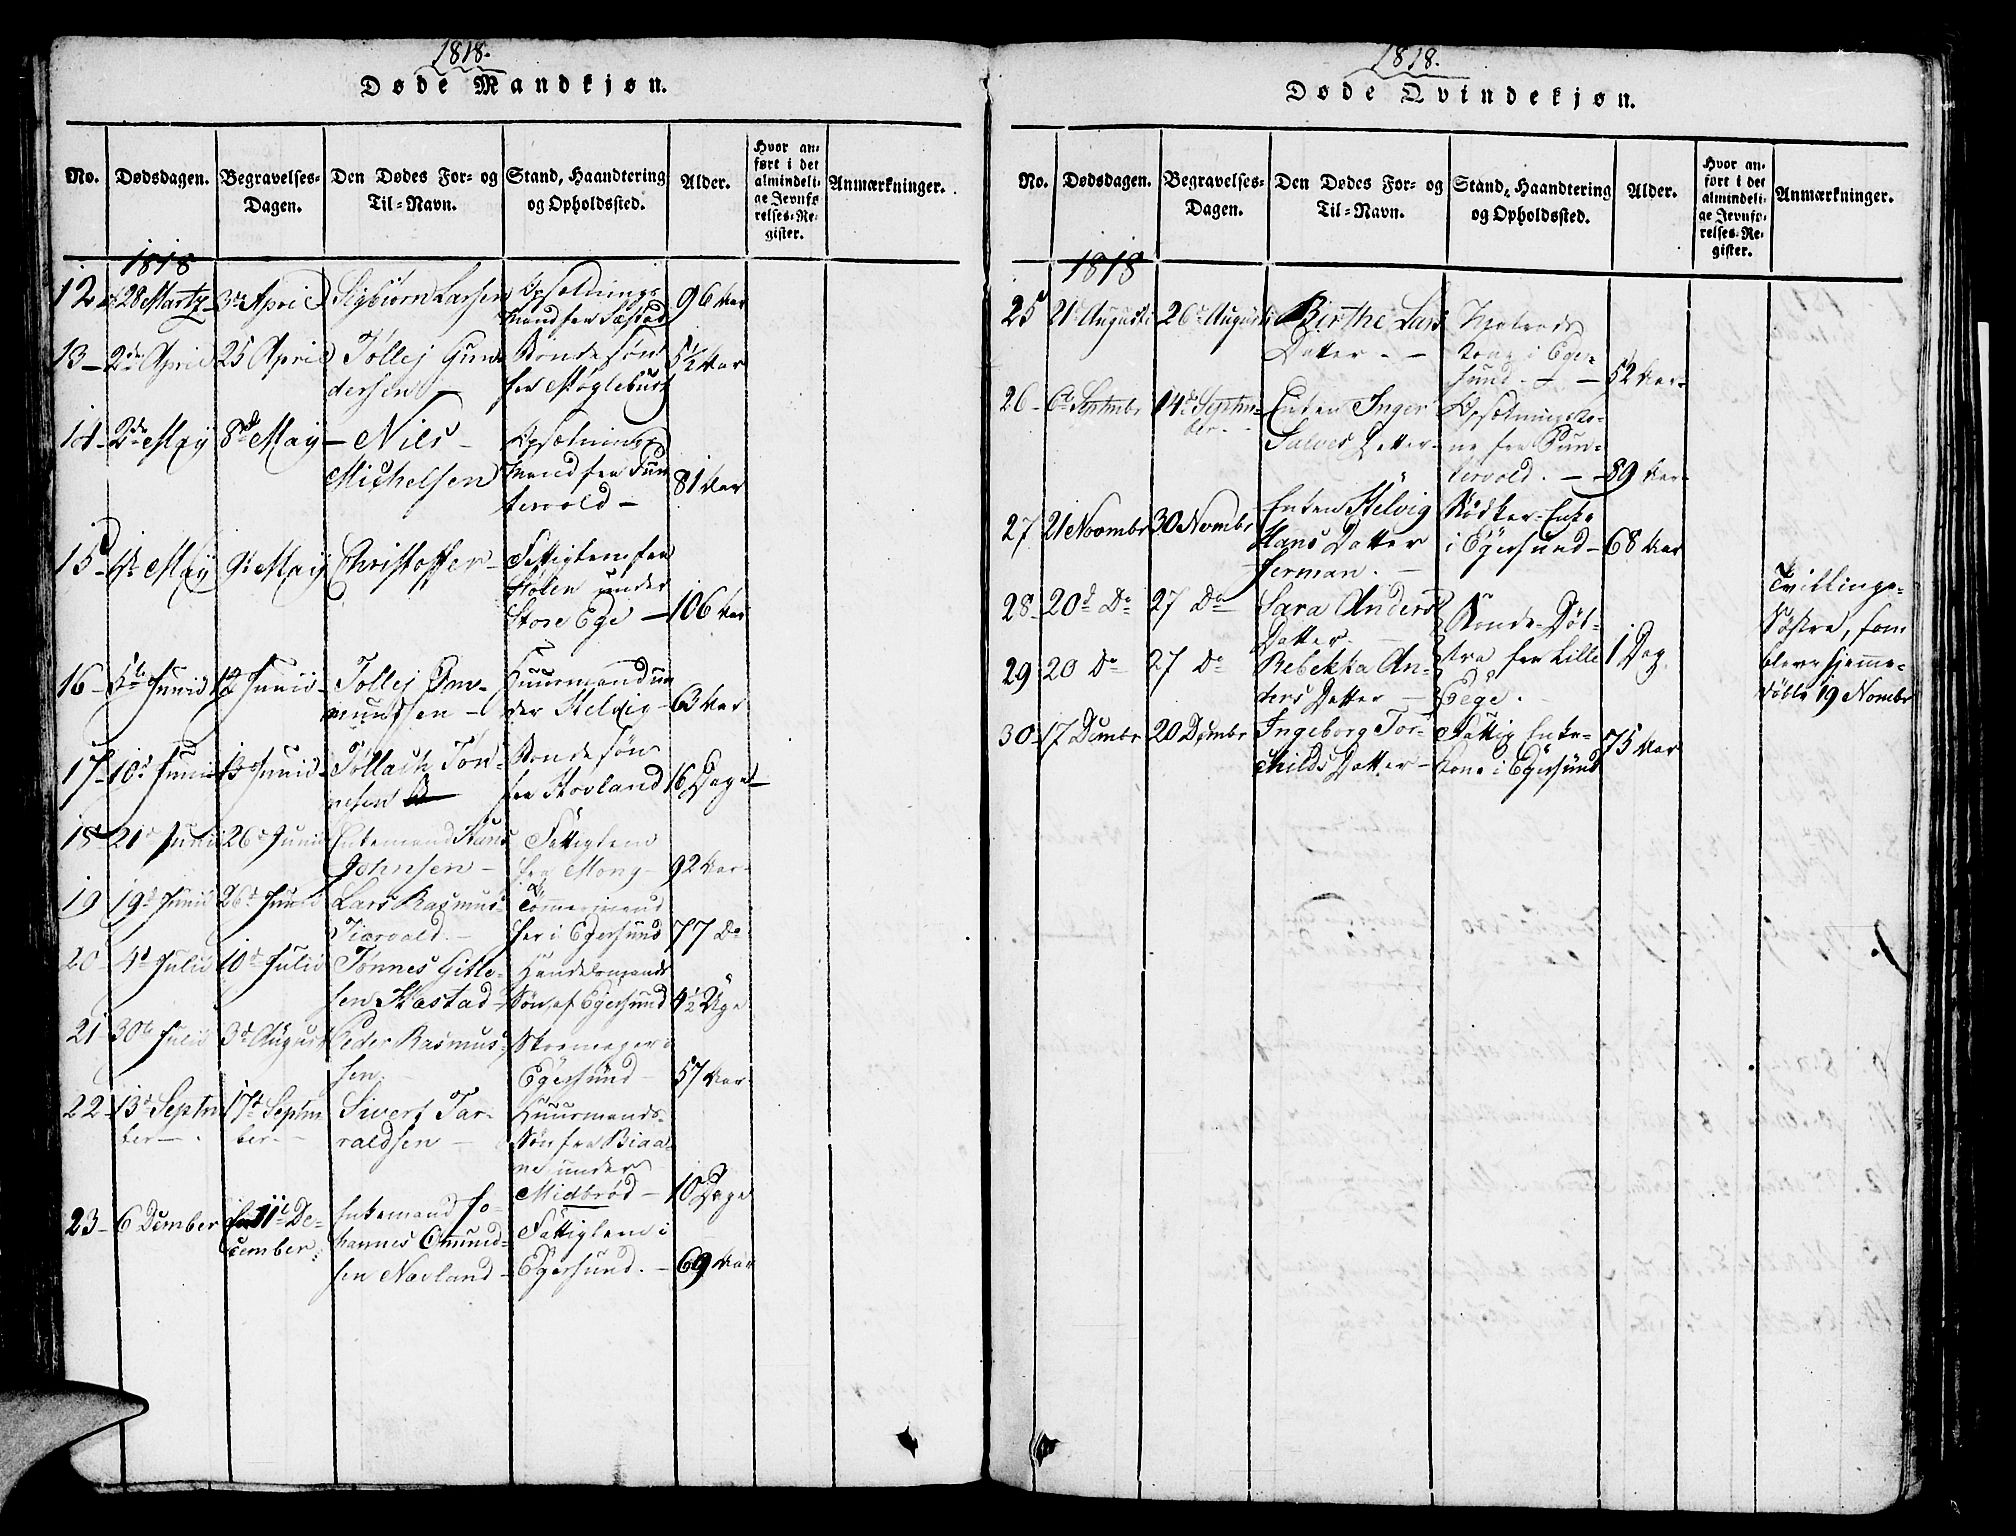 1818.
Døde Mandkjøn.
No.
Dødsdagen.
Begravelses-
Dagen.
Den Dødes For- og
Til-Navn.
Stand, Haandtering
og Opholdssted.
Alder.
Hvor an-
ført i det
almindeli-
ge Jevnfø-
relses-Re-
gister.
Anmærkninger.
1818
12 28 Martz 3de April Sigbiørn Larsen Opsætnings
mand fra Sæstad 96 Aar
13 2den April 25 April Tollej Gun-
dersen Bondesøn
fra Møglebust 5½ Aar
14 2den May 8de May Nils
Michelsen Opsætnings
mand fra Pun
tervold 81 Aar
15 4de May 9de May Christoffer Fattiglem fra
Hølen under
Store Ege 106 Aar
16 5te Junii 12 Junii Tollej Om-
mundsen Huusmand un
der Helvig 63 Aar
17 10d Junii 13 Junii Tollach Tøn-
nesen Bondesøn
fra Hovland 16 Dage
18 21d Junii 26d Junii Enkemand Hans
Johnsen Fattiglem
fra Mong 92 Aar
19 19d Junii 26d Junii Lars Rasmus-
Tiørvald Tømmermand
her i Egersund 77 Do
20 4d Julii 10d Julii Tønnes Gitle-
sen Skastad Handelsmands
Søn af Egersund 4½ Uge
21 30te Julii 3d August Peder Rasmus-
sen Skomager i
Egersund 57 Aar
22 13d Septm
ber 17d Septm
ber Sivert Tar-
raldsen Huusmands-
Søn fra Biaa
ne under
Midbrød 10 Dage
23 6 Dcember 11te De-
cember Enkemand Jo-
hannes Omund-
sen Navland Fattiglem i
Egersund 69 Aar
1818.
Døde Qvindekjøn.
No.
Dødsdagen.
Begravelses-
Dagen.
Den Dødes For- og
Til-Navn.
Stand, Haandtering
og Opholdssted.
Alder.
Hvor an-
ført i det
almindeli-
ge Jevnfø-
relses-Re-
gister.
Anmærkninger.
1818
25 21d Augusti 26d Augusti Birthe Lars
Datter
Kone i Eger-
sund 52 Aar
26 6te Septmbr 14d Septm-
ber Enken Inger
Salves Datter Opsætningsko-
ne fra Pun-
tervold 89 Aar
27 21 Novmbr 30 Novmbr Enken Helvig
Hans Datter
Jerman Bødker-Enke
i Egersund 68 Aar
28 20d Do 27 Do Sara Anders
Datter
29 20 Do 27 Do Rebekka An-
ders Datter
Bonde-Døt-
tre fra Lille
Eege 1 Dag
Tvillinge-
Søstre, som
bleve hjemme-
døbte 19 Novmbr
30 17 Dcmbr 20 Dcmbr Ingeborg Tor-
childs Datter Fattig Enke-
kone i Egersund 75 Aar